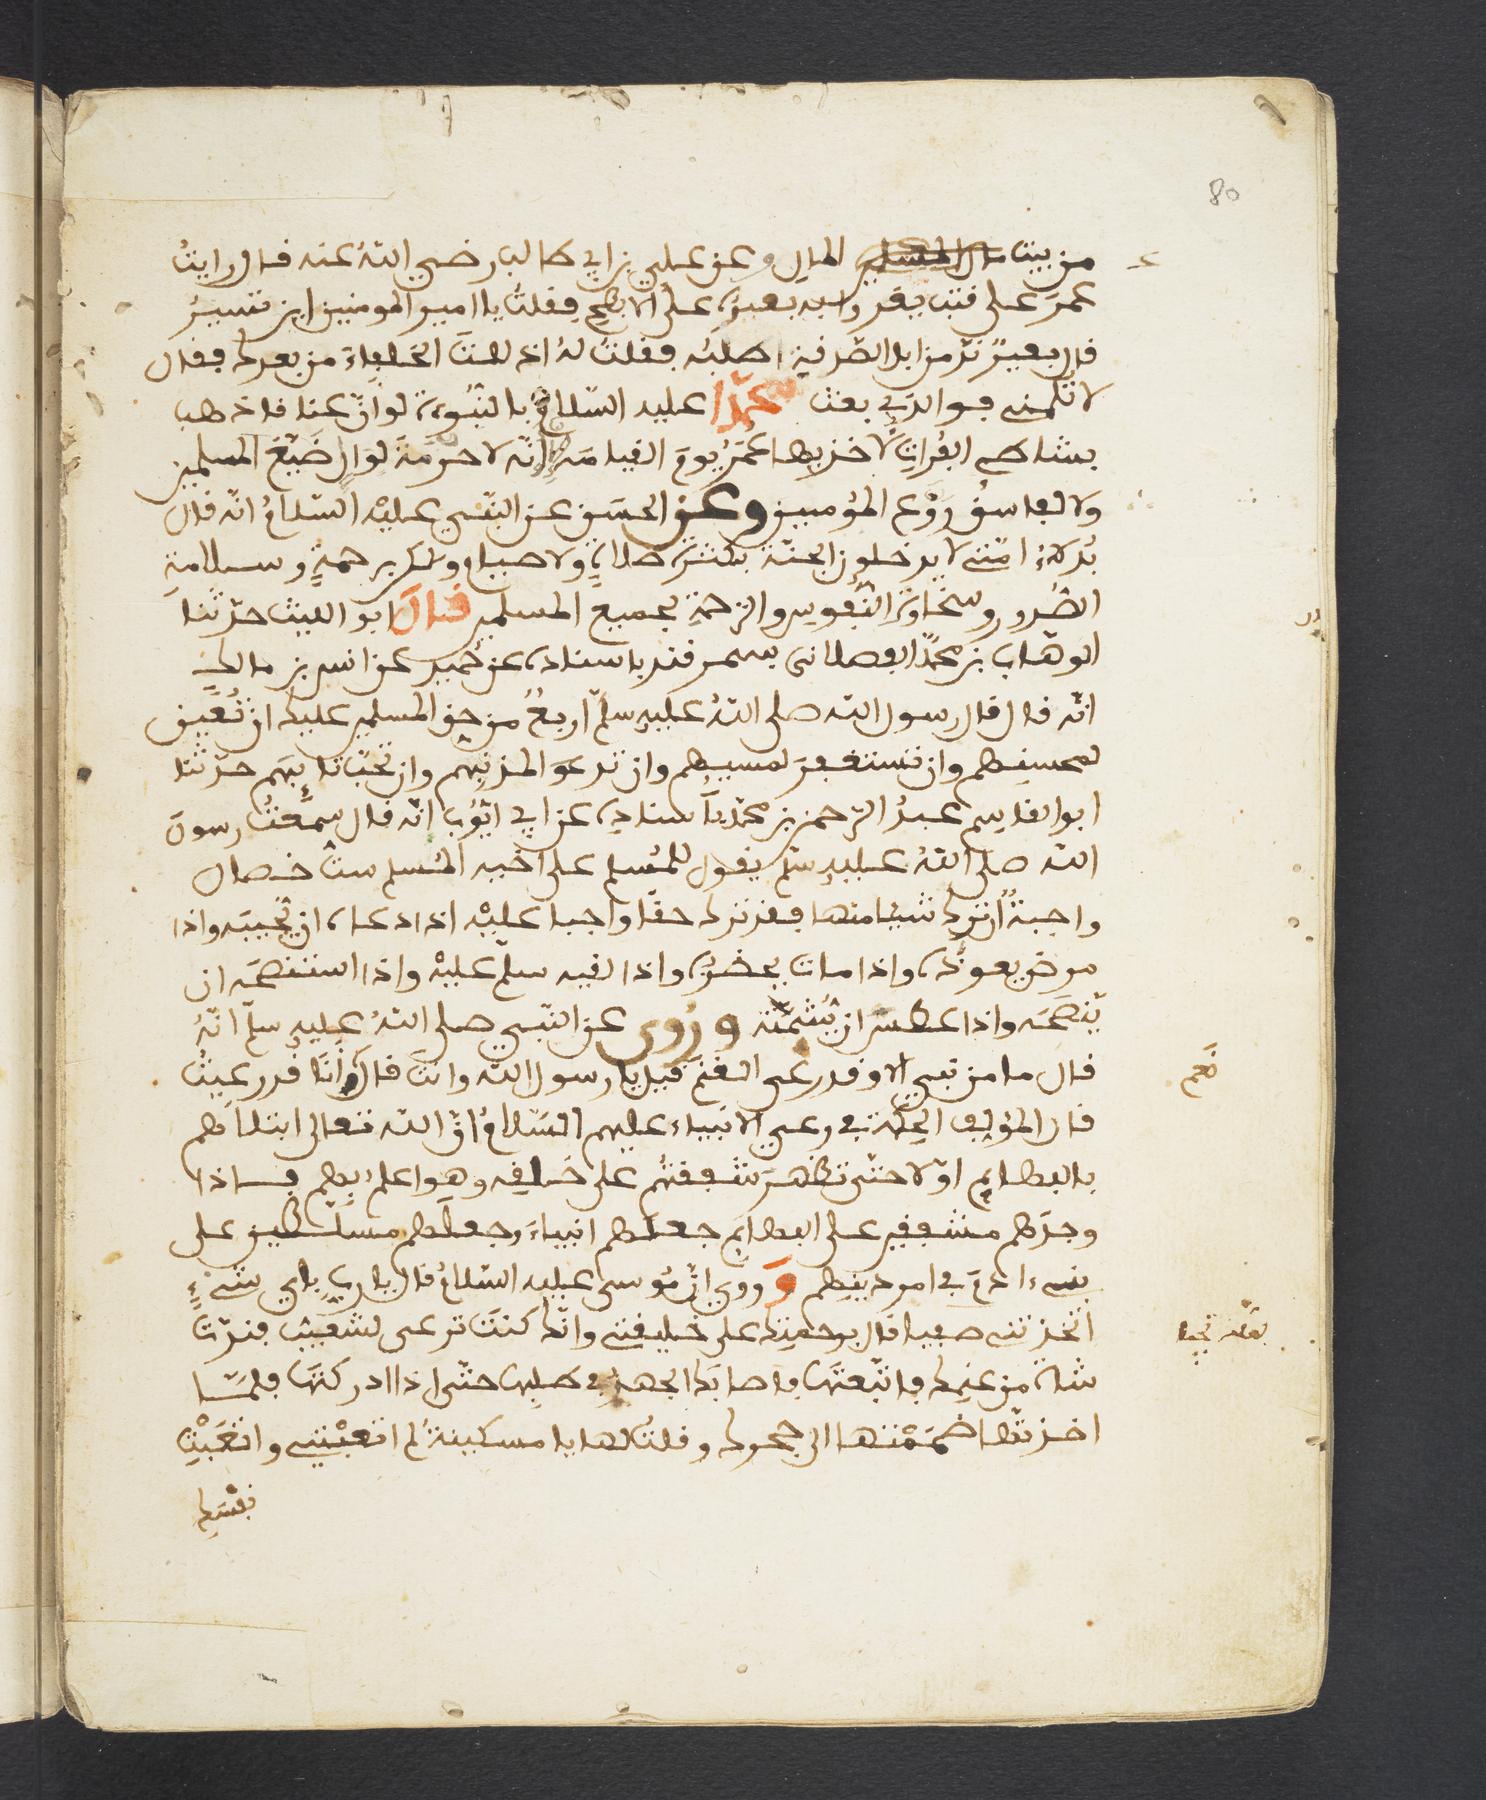 80
من بيت مال المسلمين المال وعن علي بن ابي طالب رضي الله عنه قال رايتُ
عمرَ على قتب يعدو به بعيره على الابطح فقلتُ يا امير المومنين اين تسيرُ
قال بعيرٌ ندّ من ابل الصّدقة اطلبُه فقلتُ لهُ اذ للتَ الخلفاءَ من بعدك فقال
لا تلمني فوالذي بعث محمّدًا عليه السّلامُ بالنّبُوءة لو انّ عناقا ذهب
بشاطىِ الفُراتِ لأخذ بها عُمَرُ يومَ القيامةِ انّه لا حرمَةَ لوالٍ ضَيّعَ المسلمين
ولا لفاسقٍ رَوّع المؤمنين وعن الحسَن عن النّبي عليْه السّلامُ انّه قال
بُدلاءُ امّتي لا يدخلون الجنّة بكثرة صلاةٍ ولا صيام ولكن برحمةٍ وسلامةِ
الصُّدور وسخاوة النُّفوس والرّحمةِ بجميع المسلمين قال ابو الليث حدّثنا
ابو هّاب بن محمّد الفضلاني بسمرقند باسناده عن حُميد عن انس بن مالك
انّه قال قال رسول الله صلى اللهُ عليه وسلّم اربعٌ من حقّ المسلمين عليك ان تُعين
محسنهم وان تستغفرَ لمسيئهم وان تدعوَ لمذنبهم وان تحبّ تائبَهم حدّثنا
ابو القاسِم عبدُ الرّحمن بن محمّد بإسنادِه عن ابي ايّوب انّه قال سمعتُ رسولَ
الله صلى اللهُ عليه وسلّم يقول للمُسلم على اخيه المُسلم ستّ خصال
واجبةٌ ان ترك شيئا منها فقد ترك حقّا واجبا عليْه اذا دعاه ان يُجيبَه واذا
مرض يعودُه واذا مات يحضُره واذا لقيه سلّم عليْه واذا استنصحَه ان
يّنصحَه واذا عطس ان يُشمّته ورُوي عن النّبي صلى اللهُ عليه وسلّم انّهُ
قال ما من نبيّ الا وقد رعى الغنم قيل يا رسول الله وانتَ قال وأنا قد رعيتُ
نَعم
قال المؤلف الحِكمة في رعي الانبياء عليهم السّلامُ انّ الله تعالى ابتلاهم
بالبهائم اوّلا حتّى تظهرَ شفقتُهم على خلقِه وهو اعلم بهم فاذا
وجدَهم مشفقين على البهائم جعلهم انبياءَ وجعلَهم مسلّطين على
بني ادمَ في امر دينهم وَ ورُوي انّ مُوسى عليه السّلامُ قال يا ربّ بأي شيْءٍ
اتّخذتني صفيا قال برحمتِك على خليقتي وانّك كنتَ ترعى لشعيْب فندّت
شاة من غنمِك فاتّبعتَها فاصابَك الجهدُ في طلبِها حتّى اذا ادركتَها فلمّا
اخذتَها ضَممْتَها الى حجرك وقلت لها يا مسكينةُ لم اتعبْتني واتعَبْتِ
نفسَكِ